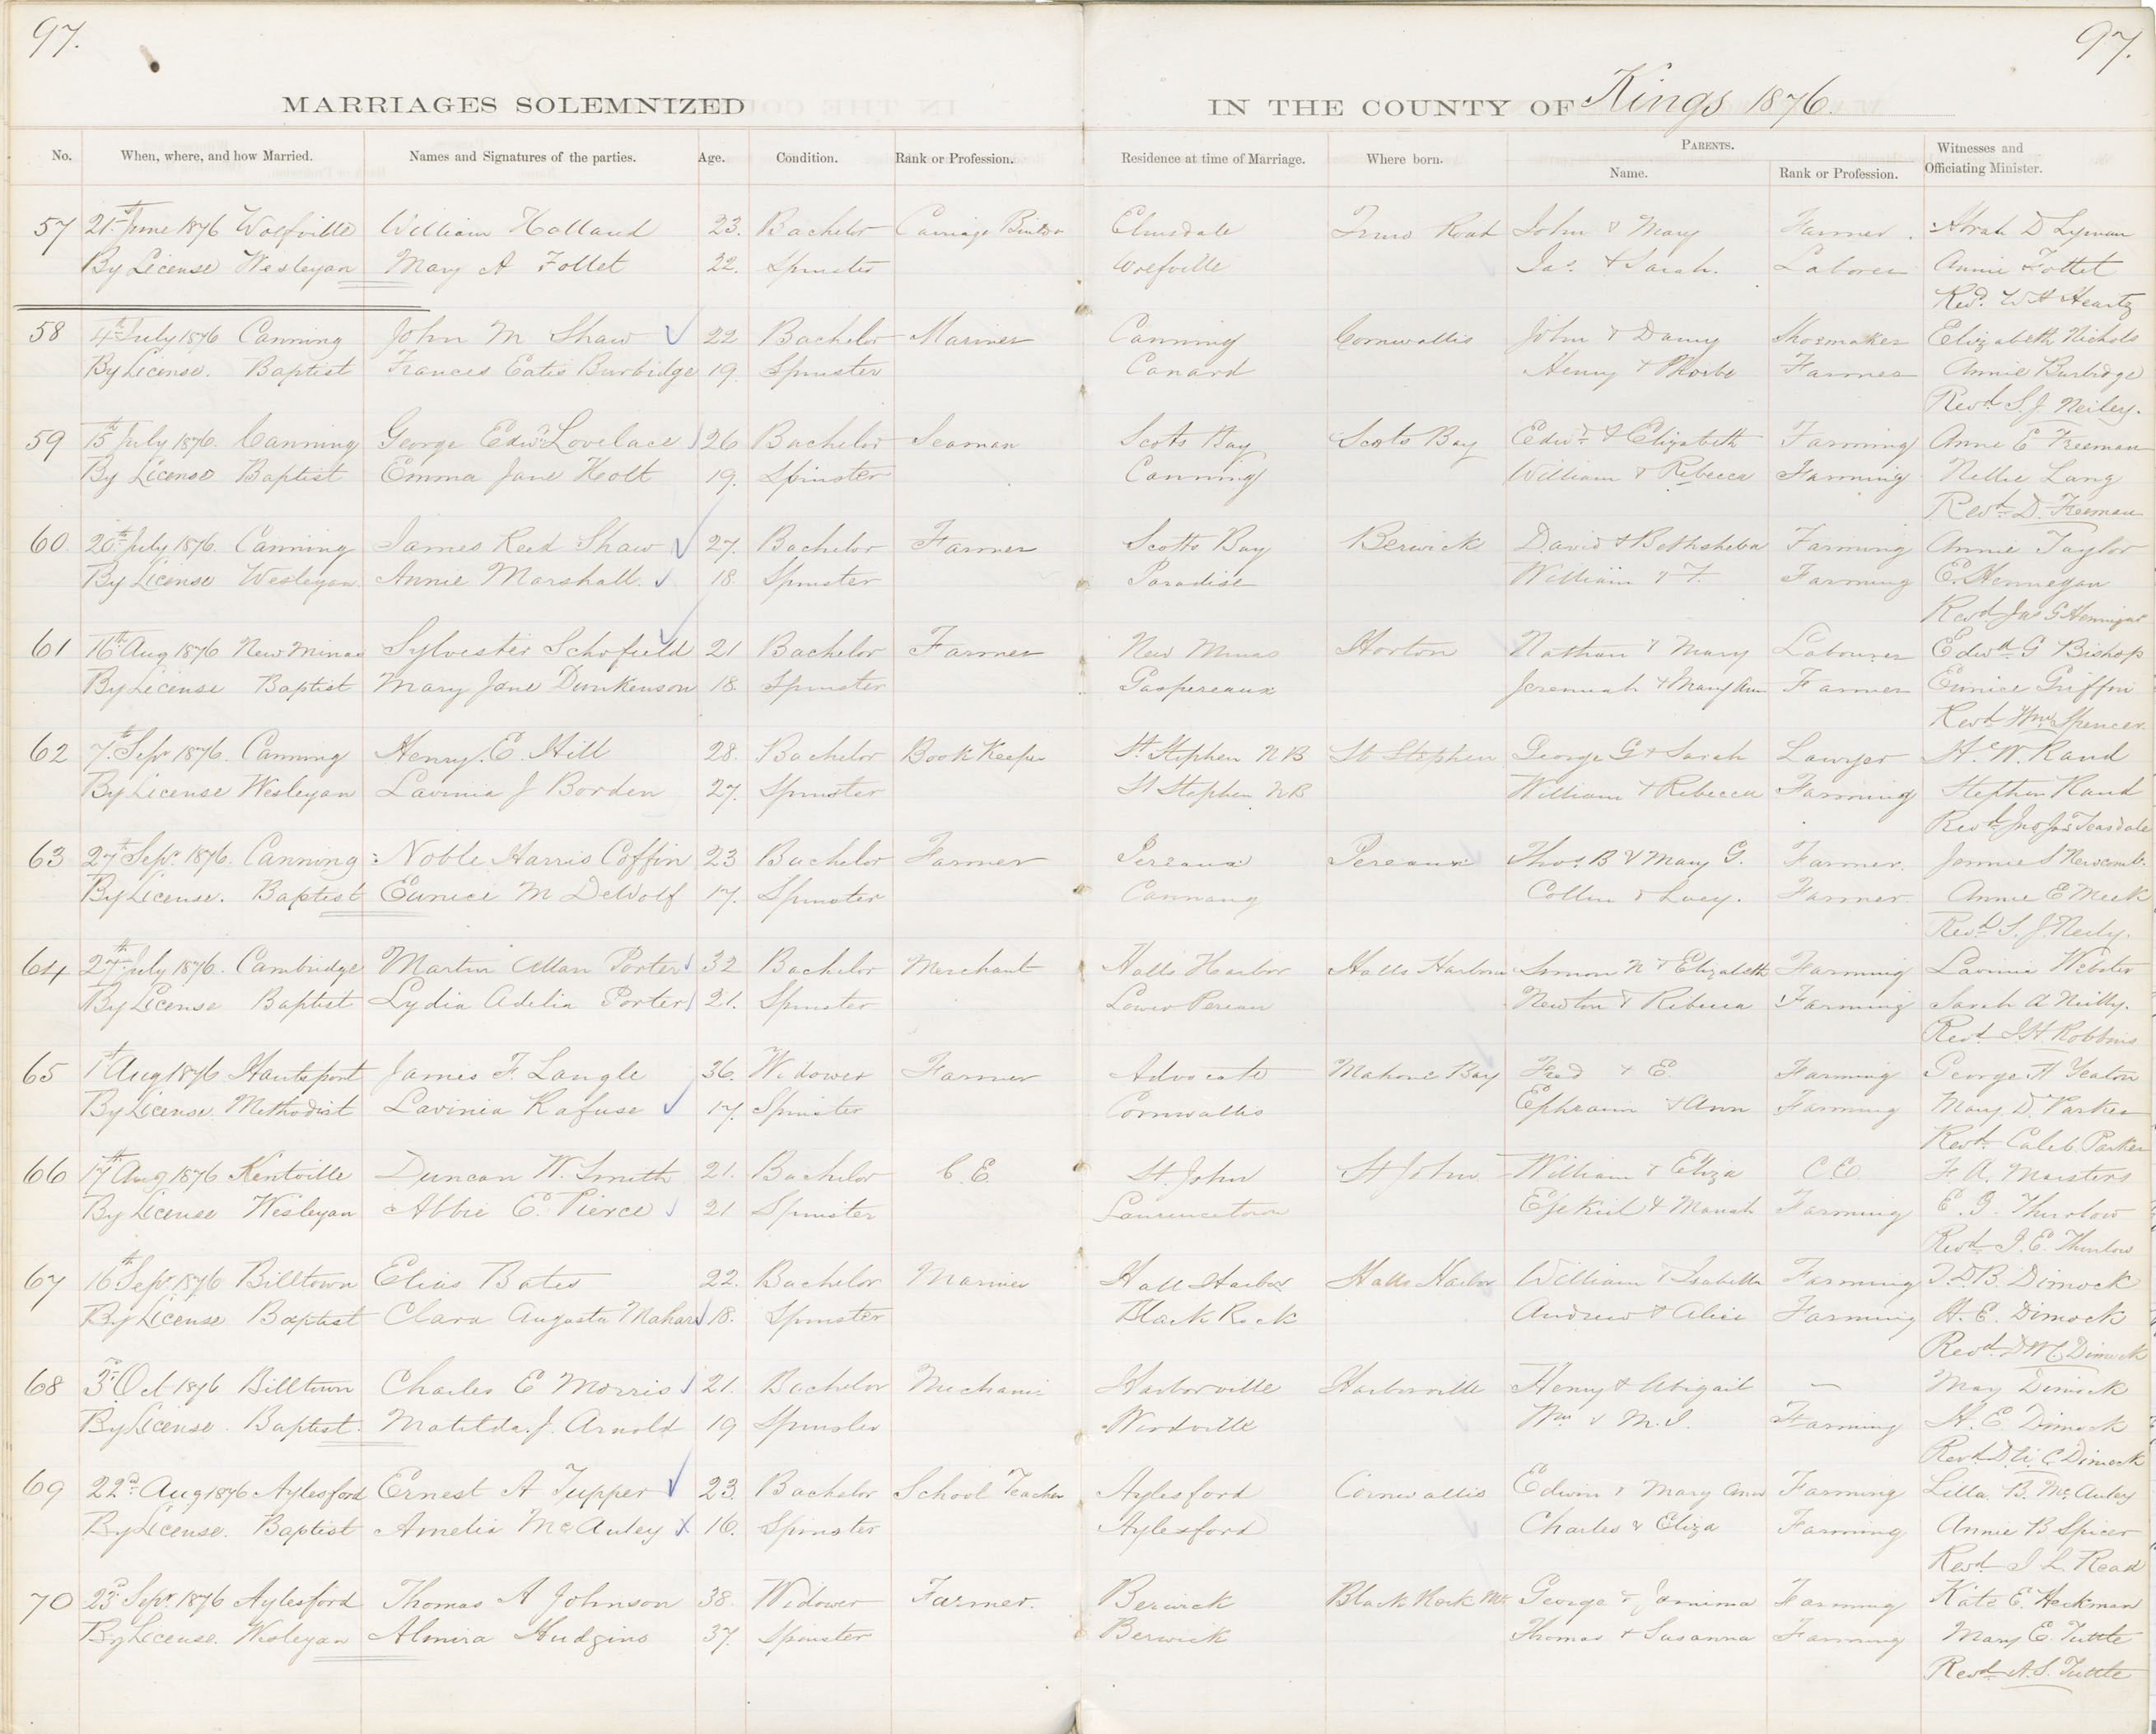 97. 97.
MARRIAGES SOLEMNIZED IN THE COUNTY OF Kings 1876.
No. When, where, and how Married. Names and Signatures of the parties. Age. Condition. Rank or Profession. Residence at time of Marriage. Where born. PARENTS. Name. Rank or Profession. Witnesses and Officiating Minister.
57 21st June 1876 Wolfville William Holland 23. Bachelor Carriage Builder Elmsdale Truro Road John & Mary Farmer. Abrah D Lyman
By License Wesleyan Mary A Follet 22. Spinster Wolfville Jas. & Sarah. Laborer Annie Follet
Revd. W H Heartz
58 4th July 1876 Canning John M Shaw 22 Bachelor Mariner Canning Cornwallis John & Shoemaker Elizabeth Nichols
By License. Baptist Frances Eatie Burbidge 19. Spinster Canard Henry & Phoebe Farmer Annie Burbidge
Revd. S. J. Neiley.
59 15th July 1876. Canning George Edwd. Lovelace 26 Bachelor Seaman Scots Bay Scots Bay Edwd & Elizabeth Farming Anne E Freeman
By License Baptist Emma Jane Holt 19. Spinster Canning William & Rebecca Farming Nellie Lang
Revd. D. Freeman
60. 20th July 1876. Canning James Reed Shaw 27. Bachelor Farmer Scotts Bay Berwick David & Bethsheba Farming Annie Taylor
By License Wesleyan. Annie Marshall. 18. Spinster Paradise William & F. Farming E. Hennegan
Revd Jas G Hennigar
61 16th Aug 1876 New Minas Sylvester Schofield 21 Bachelor Farmer New Minas Horton Nathan & Mary Labourer Edwd. G Bishop
By License Baptist Mary Jane Dunkenson 18. Spinster Gaspereaux Jeremiah & Mary Ann Farmer Eunice Griffin
Revd Wm Spencer.
62 7th Sepr 1876. Canning Henry. E. Hill 28. Bachelor Book Keeper St. Stephen N B St Stephen George G & Sarah Lawyer H. W. Rand
By License Wesleyan Lavinia J Borden 27. Spinster St Stephen N B William & Rebecca Farming Stephen Rand
Revd. Jno Jas Teasdale
63 27th Sepr. 1876. Canning Noble Harris Coffin 23 Bachelor Farmer Pereaux Pereaux Thos. B & Mary G. Farmer. Jennie S Newcomb.
By License. Baptist Eunice M DeWolf 17. Spinster Cannang Collin & Lucy. Farmer. Annie E Meek
Revd S. J. Neily.
64 27th July 1876. Cambridge Martin Allan Porter 32 Bachelor Merchant Halls Harbor Halls Harbour Simon N & Elizabeth Farming Lavinia Webster
By License Baptist Lydia Adelia Porter 21. Spinster Lower Pereau Newton & Rebecca Farming Sarah A Neilly.
Revd. I H Robbins
65 1st Aug 1876 Hantsport James F. Langle 36. Widower Farmer Advocate Mahone Bay Fred & E. Farming George A Yeaton
By License. Methodist Lavinia Rafuse 17. Spinster Cornwallis Ephraim & Ann Farming Mary. D. Parker
Revd. Caleb Parker
66 17th Aug 1876 Kentville Duncan W. Smith 21. Bachelor C. E. St. John St John William & Eliza C. E. F. A. Masters
By License Wesleyan Abbie E. Pierce 21 Spinster Laurencetown Ezekiel & Mariah Farming E. G. Thurlow
Revd. I. E. Thurlow
67 16th Sepr 1876 Billtown Elias Bates 22. Bachelor Mariner Hall Harbor Halls Harbor William & Isabella Farming T. D. B. Dimock
By License Baptist Clara Augusta Mahar 18. Spinster Black Rock Andrew & Alice Farming H. E. Dimock
Revd. D W C Dimock
68 3rd Oct 1876 Billtown Charles E Morris 21. Bachelor Mechanic Harborville Harborville Henry & Abigail — May Dimock
By License. Baptist. Matilda. J. Arnold 19 Spinster Woodville Wm & M. I. Farming H. E. Dimock
Revd. D. W. C Dimock
69 22nd Aug 1876 Aylesford Ernest A Tupper 23. Bachelor School Teacher Aylesford Cornwallis Edwin & Mary Ann Farming Lilla. B. McAuley
By License. Baptist Amelia McAuley x 16. Spinster Aylesford Charles & Eliza Farming Annie B Spicer
Revd. J L Read
70 23rd Sepr. 1876 Aylesford Thomas A Johnson 38. Widower Farmer. Berwick Black Rock Mt. George & Jemima Farming Kate E. Heckman
By License. Wesleyan Almira Hudgins 37. Spinster Berwick Thomas & Susanna Farming Mary E. Tuttle
Revd. A. S. Tuttle